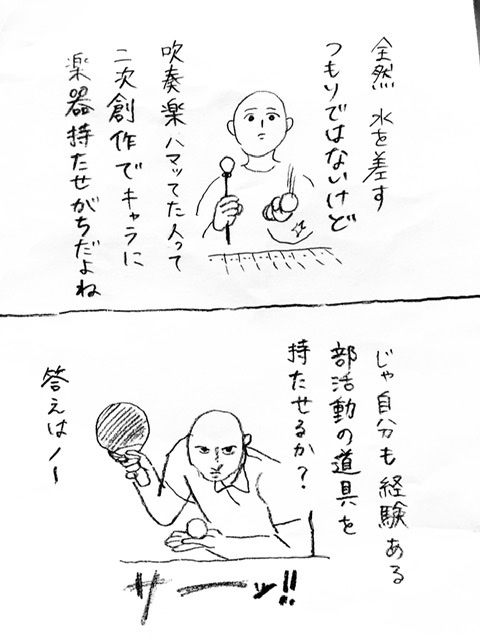 全然 水を差す
つもりではないけど
吹奏楽ハマッてた人って
二次創作でキャラに
楽器持たせがちだよね
じゃ自分も経験ある
部活動の道具を
持たせるか?
答えはノー
サーッ!!